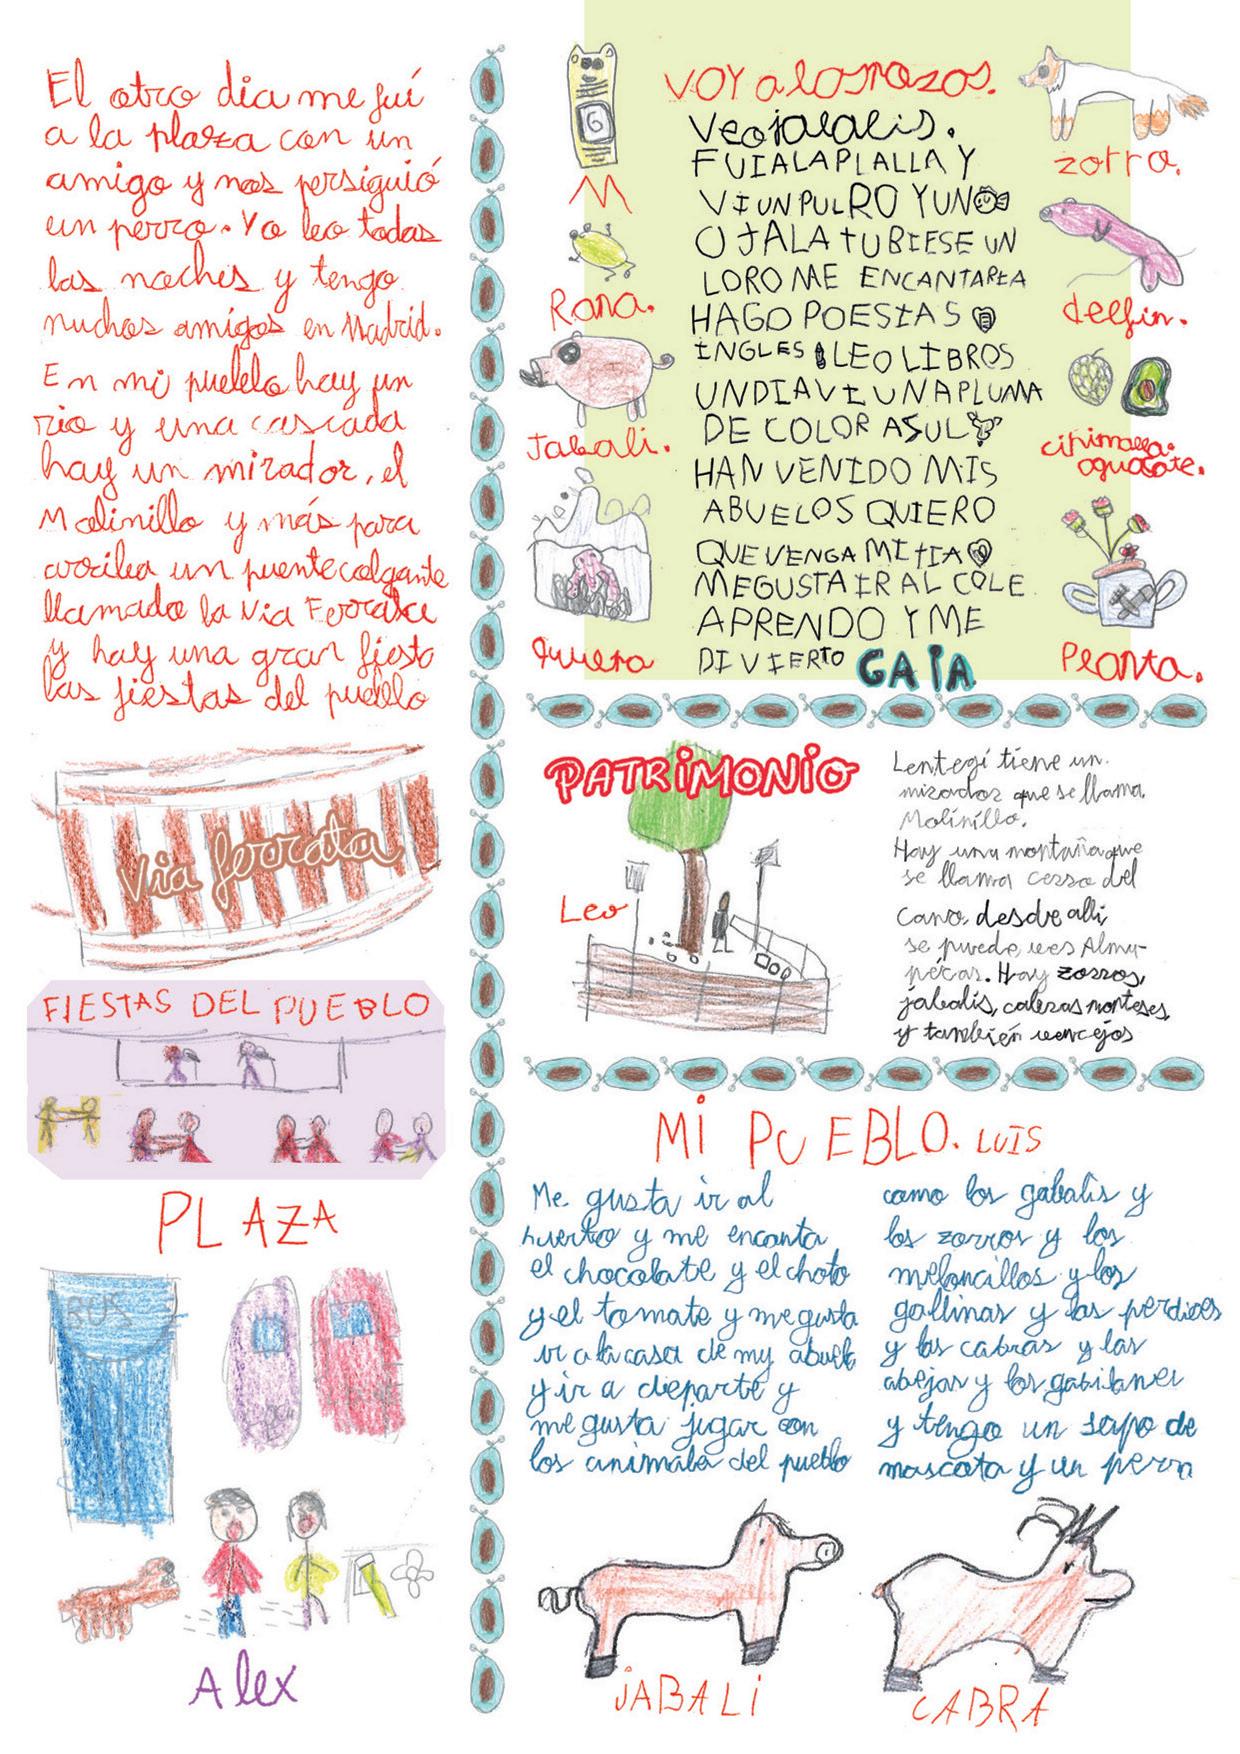 El otro dia me fuí
a la plaza con un
amigo y nos persiguió
un perro. Yo leo todas
las noches y tengo
muchos amigos en Madrid.
En mi pueblo hay un
rio y una cascada
hay un mirador, el
Molinillo y más para
arriba un puente colgante
llamado la Via Ferrata
y hay una gran fiesta
las fiestas del pueblo
Via ferrata
FIESTAS DEL PUEBLO
PLAZA
BUS
Alex
VOY a los pozos.
Veo jabalis.
FUI A LA PLALLA Y
VI UN PULRO Y UN
OJALA TUBIESE UN
LORO ME ENCANTARIA
HAGO POESIAS
INGLES LEO LIBROS
UN DIA VI UNA PLUMA
DE COLOR ASUL
HAN VENIDO MIS
ABUELOS QUIERO
QUE VENGA MI TIA
ME GUSTA IR AL COLE
APRENDO Y ME
DIVIERTO GAIA
G
M
Rana.
Jabali.
zorro.
delfin.
aguacate.
Planta.
PATRIMONIO
Leo
Lentegi tiene un
mirador que se llama
Molinillo.
Hay una montaña que
se llama cerro del
Cano, desde alli
se puede ver Almu-
ñécar. Hay zorros,
jabalís, cabras monteses,
y también vencejos
MI PUEBLO. LUIS
Me gusta ir al
huerto y me encanta
el chocolate y el choto
y el tomate y me gusta
ir a la casa de my abuela
y ir a deporte y
me gusta jugar con
los animales del pueblo
como los gabalis y
los zorros y los
meloncillos y los
gallinas y las perdices
y las cabras y las
abejas y los gabilanes
y tengo un sapo de
mascota y un perro
JABALI
CABRA